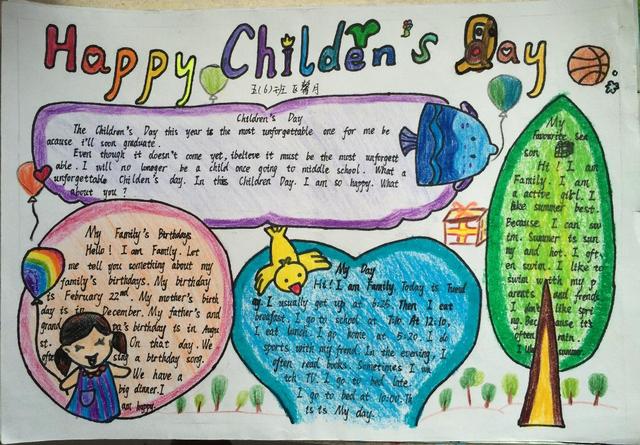 Happy Childen's Day
五(6)班
Children's Day
The Children's Day this year is the most unforgettable one for me be
acause i'll soon graduate.
Even though it doesn't come yet, ibelieve it must be the most unforgett
able. I will no longer be a child once going to middle school. What a
unforgettable Children's day. In this Children Day. I am so happy. What
about you ?
My Family's Birthdays
Hello ! I am Family. Let
me tell you something about my
family's birthdays. My birthday
is February 22nd. My mother's birth
day is in December. My father's and
grand pa's birthday is in Augu
st. On that day. We
often sing a birthday song.
We have a
big dinner. I
am happy.
My Day
Hi! I am Family. Today is Tuesd
ay. I usually get up at 6:25. Then I eat
breakfast. I go to school at 7:10. At 12:10,
I eat lunch. I go home at 5:20. I do
sports with my frend. In the evening, I
often read books. Sometimes I wa
tch TV. I go to bed late.
I go to bed at 10:00. Th
is is My day.
My
Favourite sea
son
Hi! I am
Family. I am
a active girl. I
like summer best.
Because I can sw
im. Summer is sun
ny and hot. I oft
en swim. I like to
swim with my p
arents and friends
I don't like spri
ng. Because it's
often
I like summer.